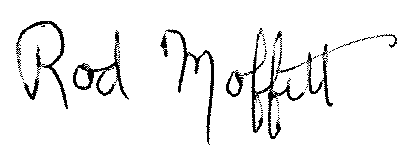 Rod Moffitt